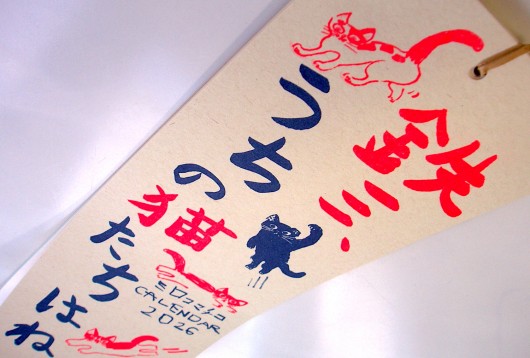 鉄三、
うちの猫
たちはね
ミロコマチコ
CALENDAR
2026